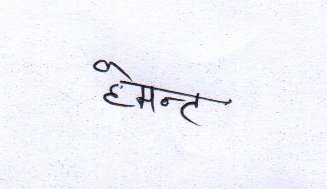 हेमन्त